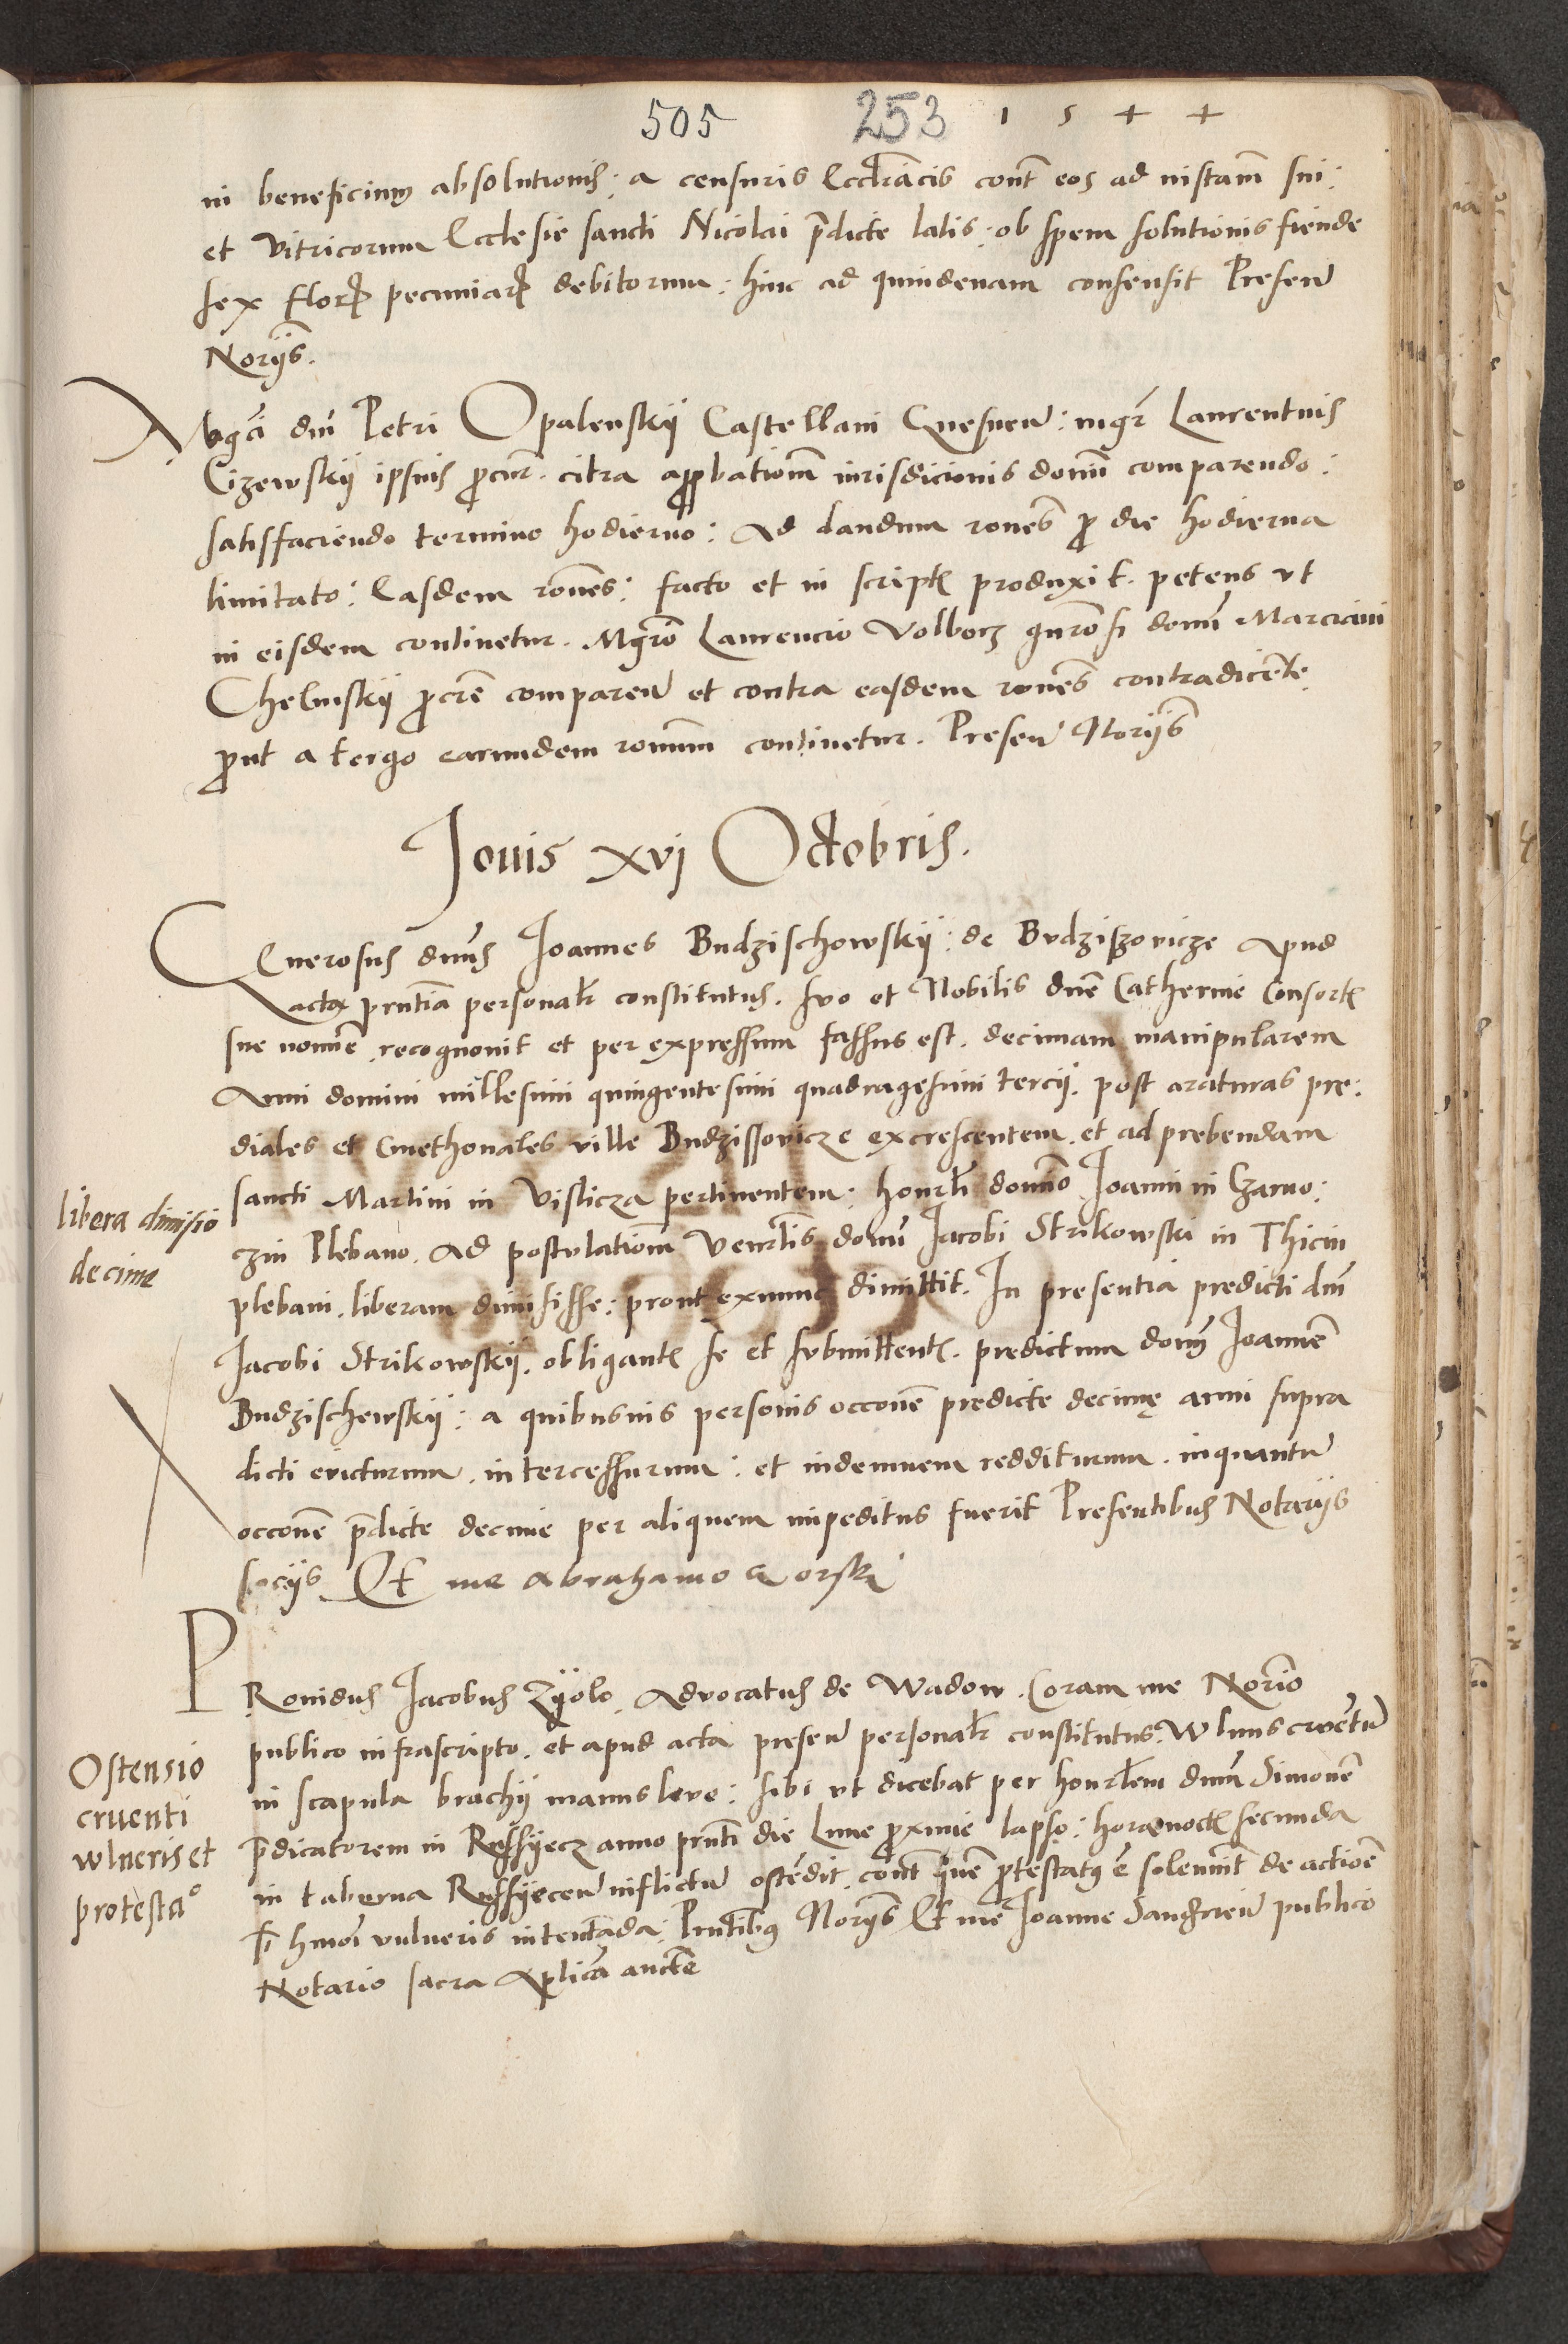 505 253 1 5 4 4
in beneficium absolutionis: a censuris Ecclīacis cont̄ eos ad instam̄ sui:
et Vitricorum Ecclesie sancti Nicolai p̄dicte latis: ob spem solutionis fiende
sex flor̄ pecuniar̄ debitorum: hinc ad quindenam consensit Presen̄
Norijs̄.
Mg̅ci dn̄i Petri Opalenskij Castellani Gnesnen̄: mgr̄ Laurentius
Cizewskij ipsius ꝓcur̄. citra approbationem̄ iurisdicionis domī comparendo:
satisfaciendo termino hodierno: Ad dandum rones̄ ꝓ die hodierna
limitato: Easdem rōnes: facto et in script̄ produxit. petens vt
in eisdem continetur. Mgrō Laurencio Volborz gn̄rosi domī Marciani
Chelmskij ꝓcrē comparen̄ et contra easdem rones̄ contradicēte
ꝓut a tergo earumdem ronum̄ continetur. Presen̄ Norijs̄
Jouis xvj Octobris.
Generosus dn̄us Joannes Budzischowskij: de Budziszovicze Apud
acta prn̄tia personalr̄ constitutus. suo et Nobilis dnē Catherine Consort̄
sue nomine recognouit et per expressum fassus est. decimam manipularem
Anni domini millesimi quingentesimi quadragesimi tercij. post araturas pre:
diales et Cmethonales ville Budzissovicze excrescentem. et ad prebendam
sancti Martini in Visticza pertinentem: honrl̄i domīo Joanni in Czarno:
czin Plebano. Ad postulationem̄ Venrl̄is domī Jacobi Strikowski in Thicin
plebani. liberam dimisisse: prout exnunc dimittit. In presentia predicti dn̄i
Jacobi Strikowskij. obligant̄ se et submittent̄. predictum domī Joannē
Budzischewskij: a quibusuis personis occonē predicte decimę anni supra
dicti evicturum. intercessurum: et indemnem redditurum. inquantū
occonē p̄dicte decime per aliquem impeditus fuerit Presentibus Notarijs
socijs Et me Abrahamo Gorski
libera dimisio
decime
PRouidus Jacobus Zyolo. Advocatus de Wadow. Coram me Norīo
publico infrascripto. et apud acta presen̄ personalr̄ constitutus. Wlnus cruentū
in scapula brachij manus leve: sibi vt dicebat per honrl̄em dn̄um Simonē
p̄dicatorem in Russyecz anno prn̄ti die Lune ꝓxime lapso: hora noct̄ secunda
in taberna Russyecen̄ inflictū ostēdit. cont̄ quē ꝓtestatꝰ ē solennit̄ de actioē
sr̄ hmōi vulneris intentāda: Prn̄tibꝰ Norijs̄ Et me Joanne Dangkien̄ publico
Notario sacra Aplicā auctē
Ostensio
cruenti
wlneris et
protesta°